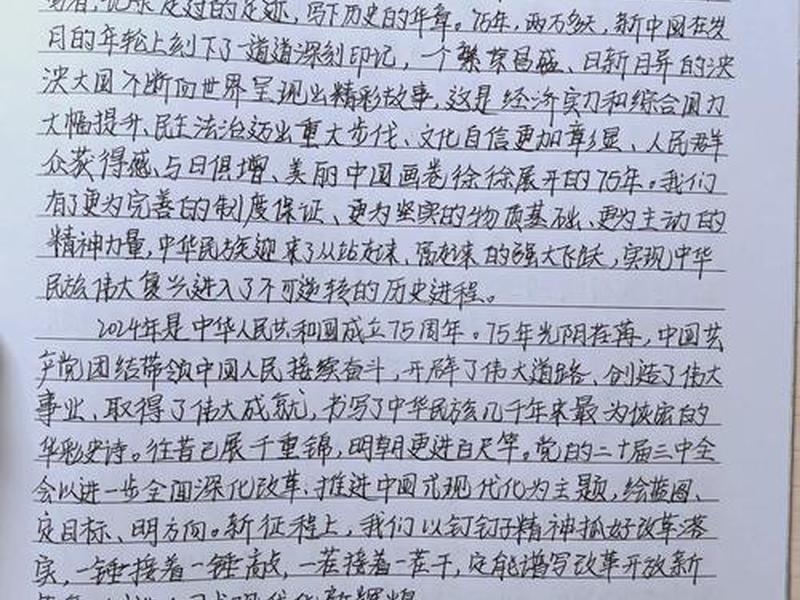 走过的足迹，写下历史的年章。75年，两万多天，新中国在岁
月的年轮上刻下了一道道深刻印记，一个繁荣昌盛、日新月异的泱
泱大国不断向世界呈现出精彩故事，这是经济实力和综合国力
大幅提升、民主法治迈出重大步伐、文化自信更加彰显、人民群
众获得感与日俱增、美丽中国画卷徐徐展开的75年。我们
有了更为完善的制度保证、更为坚实的物质基础、更为主动的
精神力量，中华民族迎来了从站起来、富起来的强大飞跃，实现中华
民族伟大复兴进入了不可逆转的历史进程。
2024年是中华人民共和国成立75周年。75年光阴荏苒，中国共
产党团结带领中国人民接续奋斗，开辟了伟大道路、创造了伟大
事业、取得了伟大成就，书写了中华民族几千年来最为恢宏的
华彩史诗。往昔已展千重锦，明朝更进百尺竿。党的二十届三中全
会以进一步全面深化改革、推进中国式现代化为主题，绘蓝图、
定目标、明方向。新征程上，我们以钉钉子精神抓好改革落
实，一锤接着一锤敲，一茬接着一茬干，定能谱写改革开放新